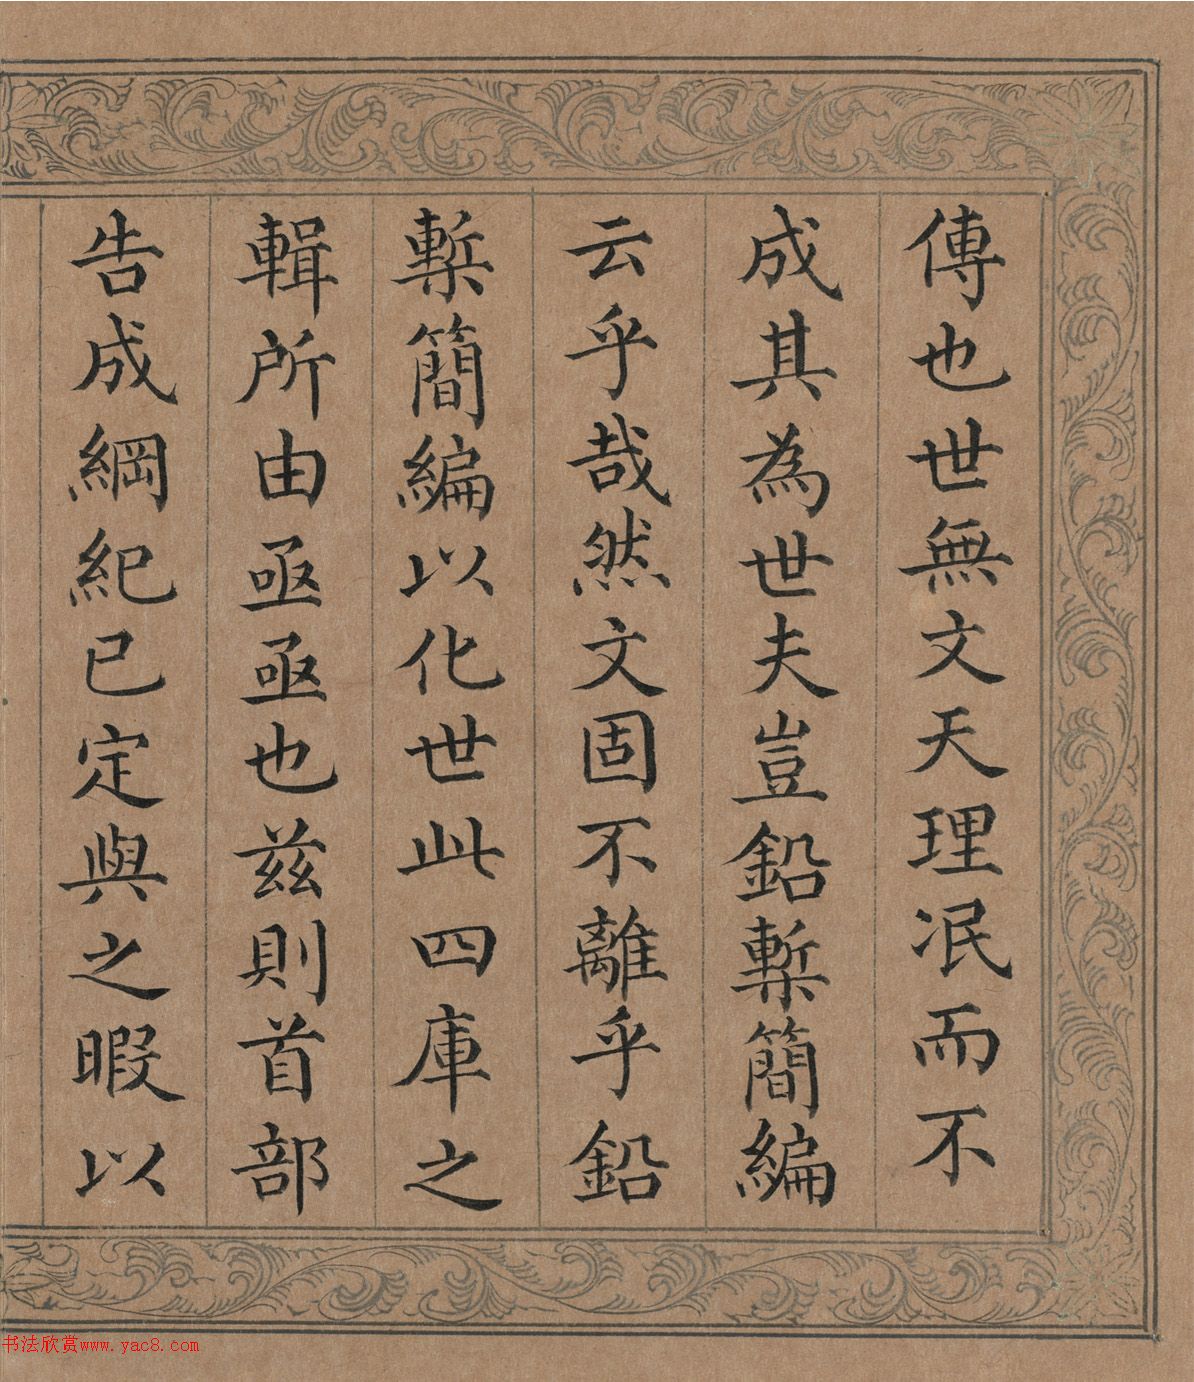 傳也世無文天理泯而不
成其為世夫豈鉛槧簡編
云乎哉然文固不離乎鉛
槧簡編以化世此四庫之
輯所由亟亟也兹則首部
告成綱紀已定與之暇以
书法欣赏www.yac8.com